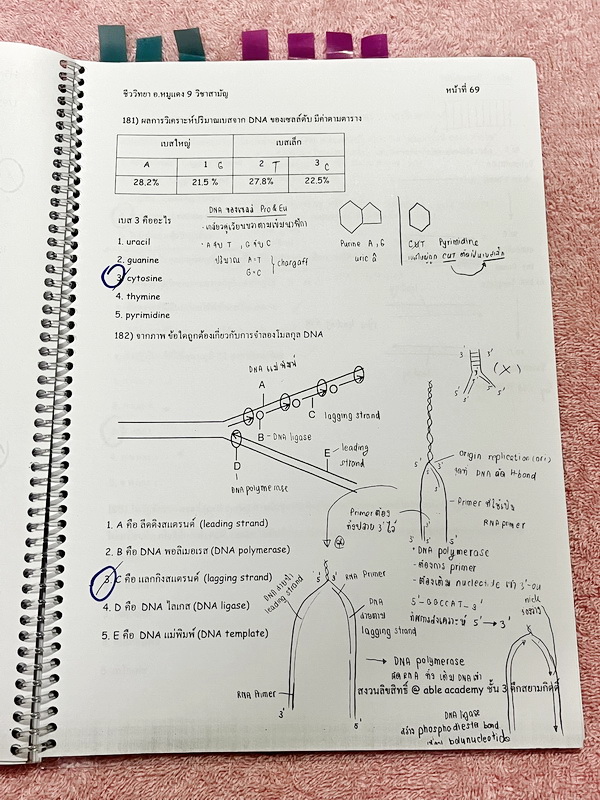 ชีววิทยา อ.หมูแดง 9 วิชาสามัญ
หน้าที่ 69
181) ผลการวิเคราะห์ปริมาณเบสจาก DNA ของเซลล์ตับ มีค่าตามตาราง
เบสใหญ่ เบสเล็ก
A 1 G 2 T 3 C
28.2% 21.5 % 27.8% 22.5%
เบส 3 คืออะไร
1. uracil
2. guanine
3. cytosine
4. thymine
5. pyrimidine
DNA ของเซลล์ Pro & Eu
· เกลียวคู่เวียนขวาตามเข็มนาฬิกา
· A คู่ T , G คู่ C
ปริมาณ A=T
G=C
chargaff
Purine A, G
CUT Pyrimidine
182) จากภาพ ข้อใดถูกต้องเกี่ยวกับการจำลองโมเลกุล DNA
DNA แม่พิมพ์
A
C lagging strand
B - DNA ligase
D
DNA polymerase
E leading strand
3' 3'
(X)
5' 5'
3' 3'
origin replication (ori)
จุดที่ DNA ตัด H-bond
5' 3'
Primer ต้อง
Primer ที่ใช้เป็น
RNA primer
3' 5' 5'
1. A คือ ลีดดิงสแตรนด์ (leading strand)
2. B คือ DNA พอลิเมอเรส (DNA polymerase)
3. C คือ แลกกิงสแตรนด์ (lagging strand)
4. D คือ DNA ไลเกส (DNA ligase)
5. E คือ DNA แม่พิมพ์ (DNA template)
· DNA polymerase
- ต้องการ primer
- ต้องเติม nucleotide เข้า 3'-OH
5'-GGCCAT-3'
ทิศการสังเคราะห์ 5' → 3'
nick
5' 3' RNA Primer
leading strand
DNA
lagging strand
RNA Primer
3' 5'
→ DNA polymerase
สงวนลิขสิทธิ์ @ able academy ชั้น 3 ตึกสยามกิตติ์
DNA ligase
สร้าง phosphodiester bond